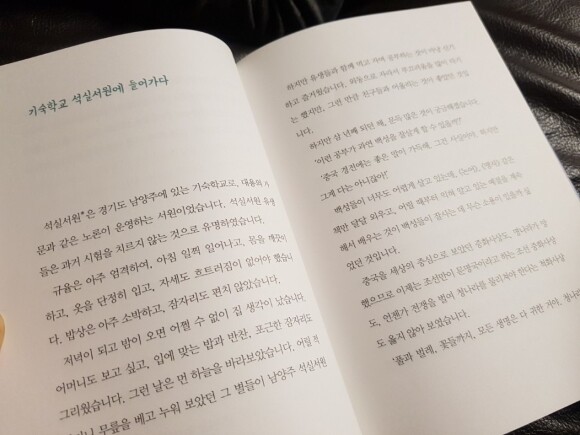 기숙학교 석실서원에 들어가다
석실서원*은 경기도 남양주에 있는 기숙학교로, 대용의 가
문과 같은 노론이 운영하는 서원이었습니다. 석실서원 유생
들은 과거 시험을 치르지 않는 것으로 유명하였습니다.
규율은 아주 엄격하여, 아침 일찍 일어나고, 몸을 깨끗이
하고, 옷을 단정히 입고, 자세도 흐트러짐이 없어야 했습니
다. 밥상은 아주 소박하고, 잠자리도 편치 않았습니다.
저녁이 되고 밤이 오면 어쩔 수 없이 집 생각이 났습니다.
어머니도 보고 싶고, 입에 맞는 밥과 반찬, 포근한 잠자리도
그리웠습니다. 그런 날은 먼 하늘을 바라보았습니다. 어릴 적
무릎을 베고 누워 보았던 그 별들이 남양주 석실서원
하지만 유생들과 함께 먹고 자며 공부하는 것이 마냥 신기
하고 즐거웠습니다. 외동으로 자라서 부끄러움을 많이 타기
는 했지만, 그런 만큼 친구들과 어울리는 것이 좋았던 것입
니다.
하지만 삼 년째 되던 때, 문득 많은 것이 궁금해졌습니다.
'이런 공부가 과연 백성을 잘살게 할 수 있을까?'
'중국 경전에는 좋은 말이 가득해. 그건 사실이야. 하지만
그게 다는 아니잖아!'
백성들이 너무도 어렵게 살고 있는데, 《논어》, 《맹자》 같은
책만 달달 외우고, 어떨 때부터 익혀 알고 있는 예절을 계속
해서 배우는 것이 백성들이 살아가는 데 무슨 소용이 있을까 싶
었던 것입니다.
중국을 세상의 중심으로 보았던 중화사상도, 명나라가 망
했으므로 이제는 조선만이 문명국이라고 하는 조선 중화사상
도, 언젠가 전쟁을 벌여 청나라를 물리쳐야 한다는 북벌사상
도 옳지 않아 보였습니다.
'풀과 벌레, 꽃들까지, 모든 생명은 다 귀한 거야. 청나라